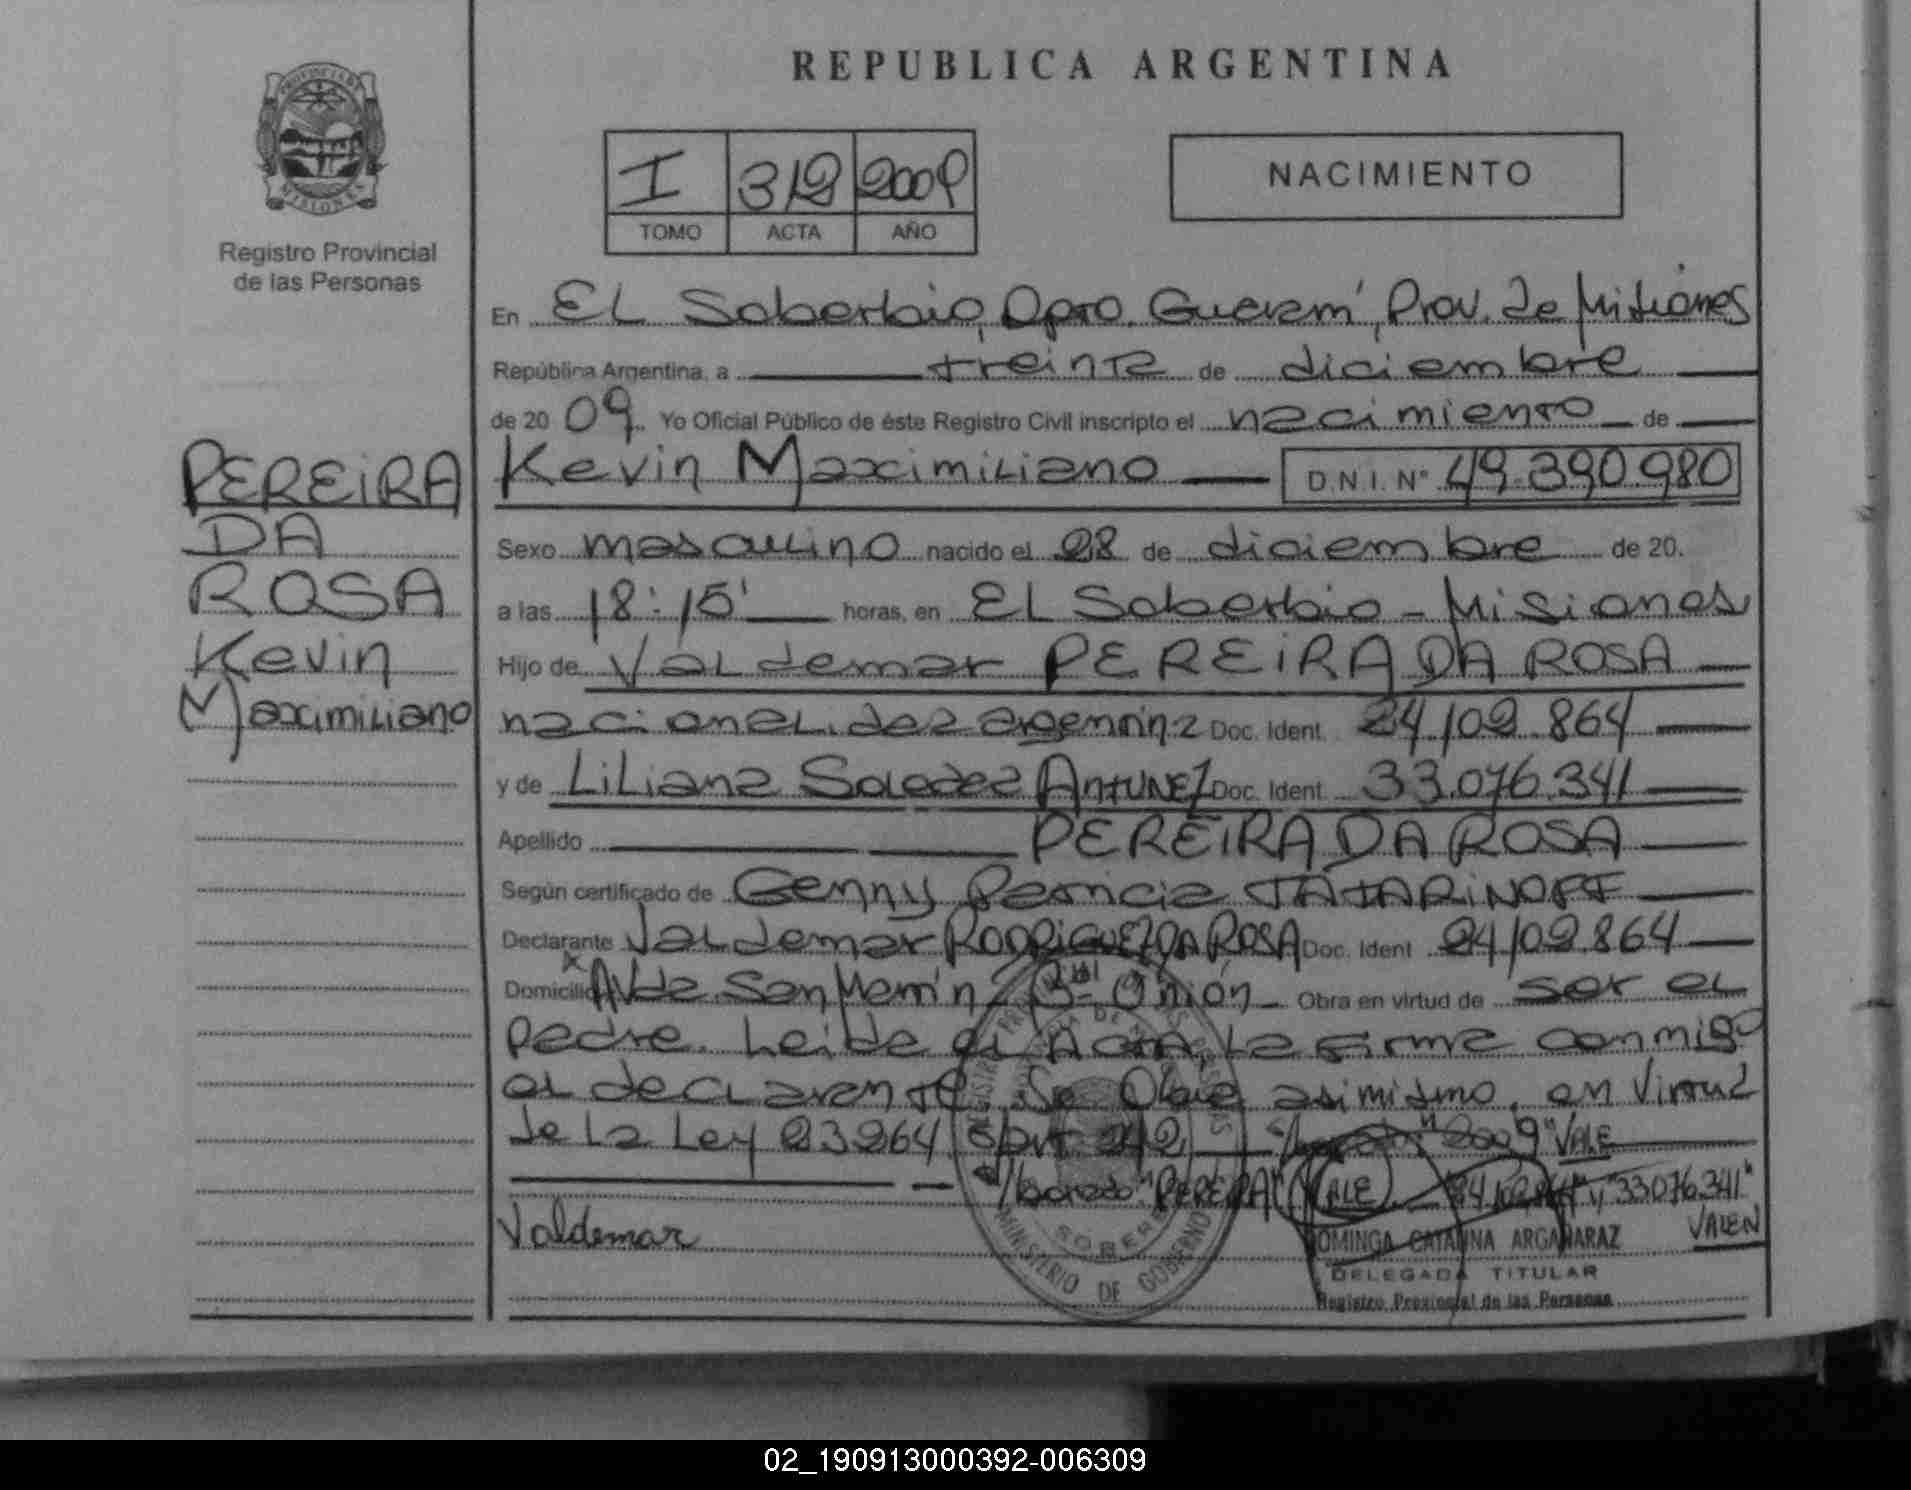 REPUBLICA ARGENTINA
PROVINCIA DE
MISIONES
Registro Provincial
de las Personas
I 312 2009
TOMO ACTA AÑO
NACIMIENTO
En EL Soberbio, Dpto. Guaraní, Prov. de Misiones
República Argentina, a treinta de diciembre
de 20 09. Yo Oficial Público de éste Registro Civil inscripto el nacimiento de
Kevin Maximiliano D.N.I. Nº 49.390.980
PEREIRA
DA
ROSA
Kevin
Maximiliano
Sexo masculino nacido el 28 de diciembre de 20.
a las 18:15' horas, en EL Soberbio - Misiones
Hijo de Valdemar PEREIRA DA ROSA
nacionalidad argentina Doc. Ident. 24.102.864
y de Liliana Soledad ANTUNEZ Doc. Ident. 33.076.341
Apellido PEREIRA DA ROSA
Según certificado de Genny Patricia TATARINOFF
Declarante Valdemar RODRIGUEZ DA ROSA Doc. Ident. 24.102.864
Domicilio Avda San Martín Bº Unión Obra en virtud de ser el
padre. Leída el Acta, La firma conmigo
el declarante. Se Obra asimismo, en Virtud
de La Ley 23264 Art. 242 "2009" VALE
"PEREIRA" VALE 24.102.864" y "33.076.341"
VALEN
Valdemar
DOMINGA CATALINA ARGAÑARAZ
DELEGADA TITULAR
Registro Provincial de las Personas
MINISTERIO DE GOBIERNO
02_190913000392-006309